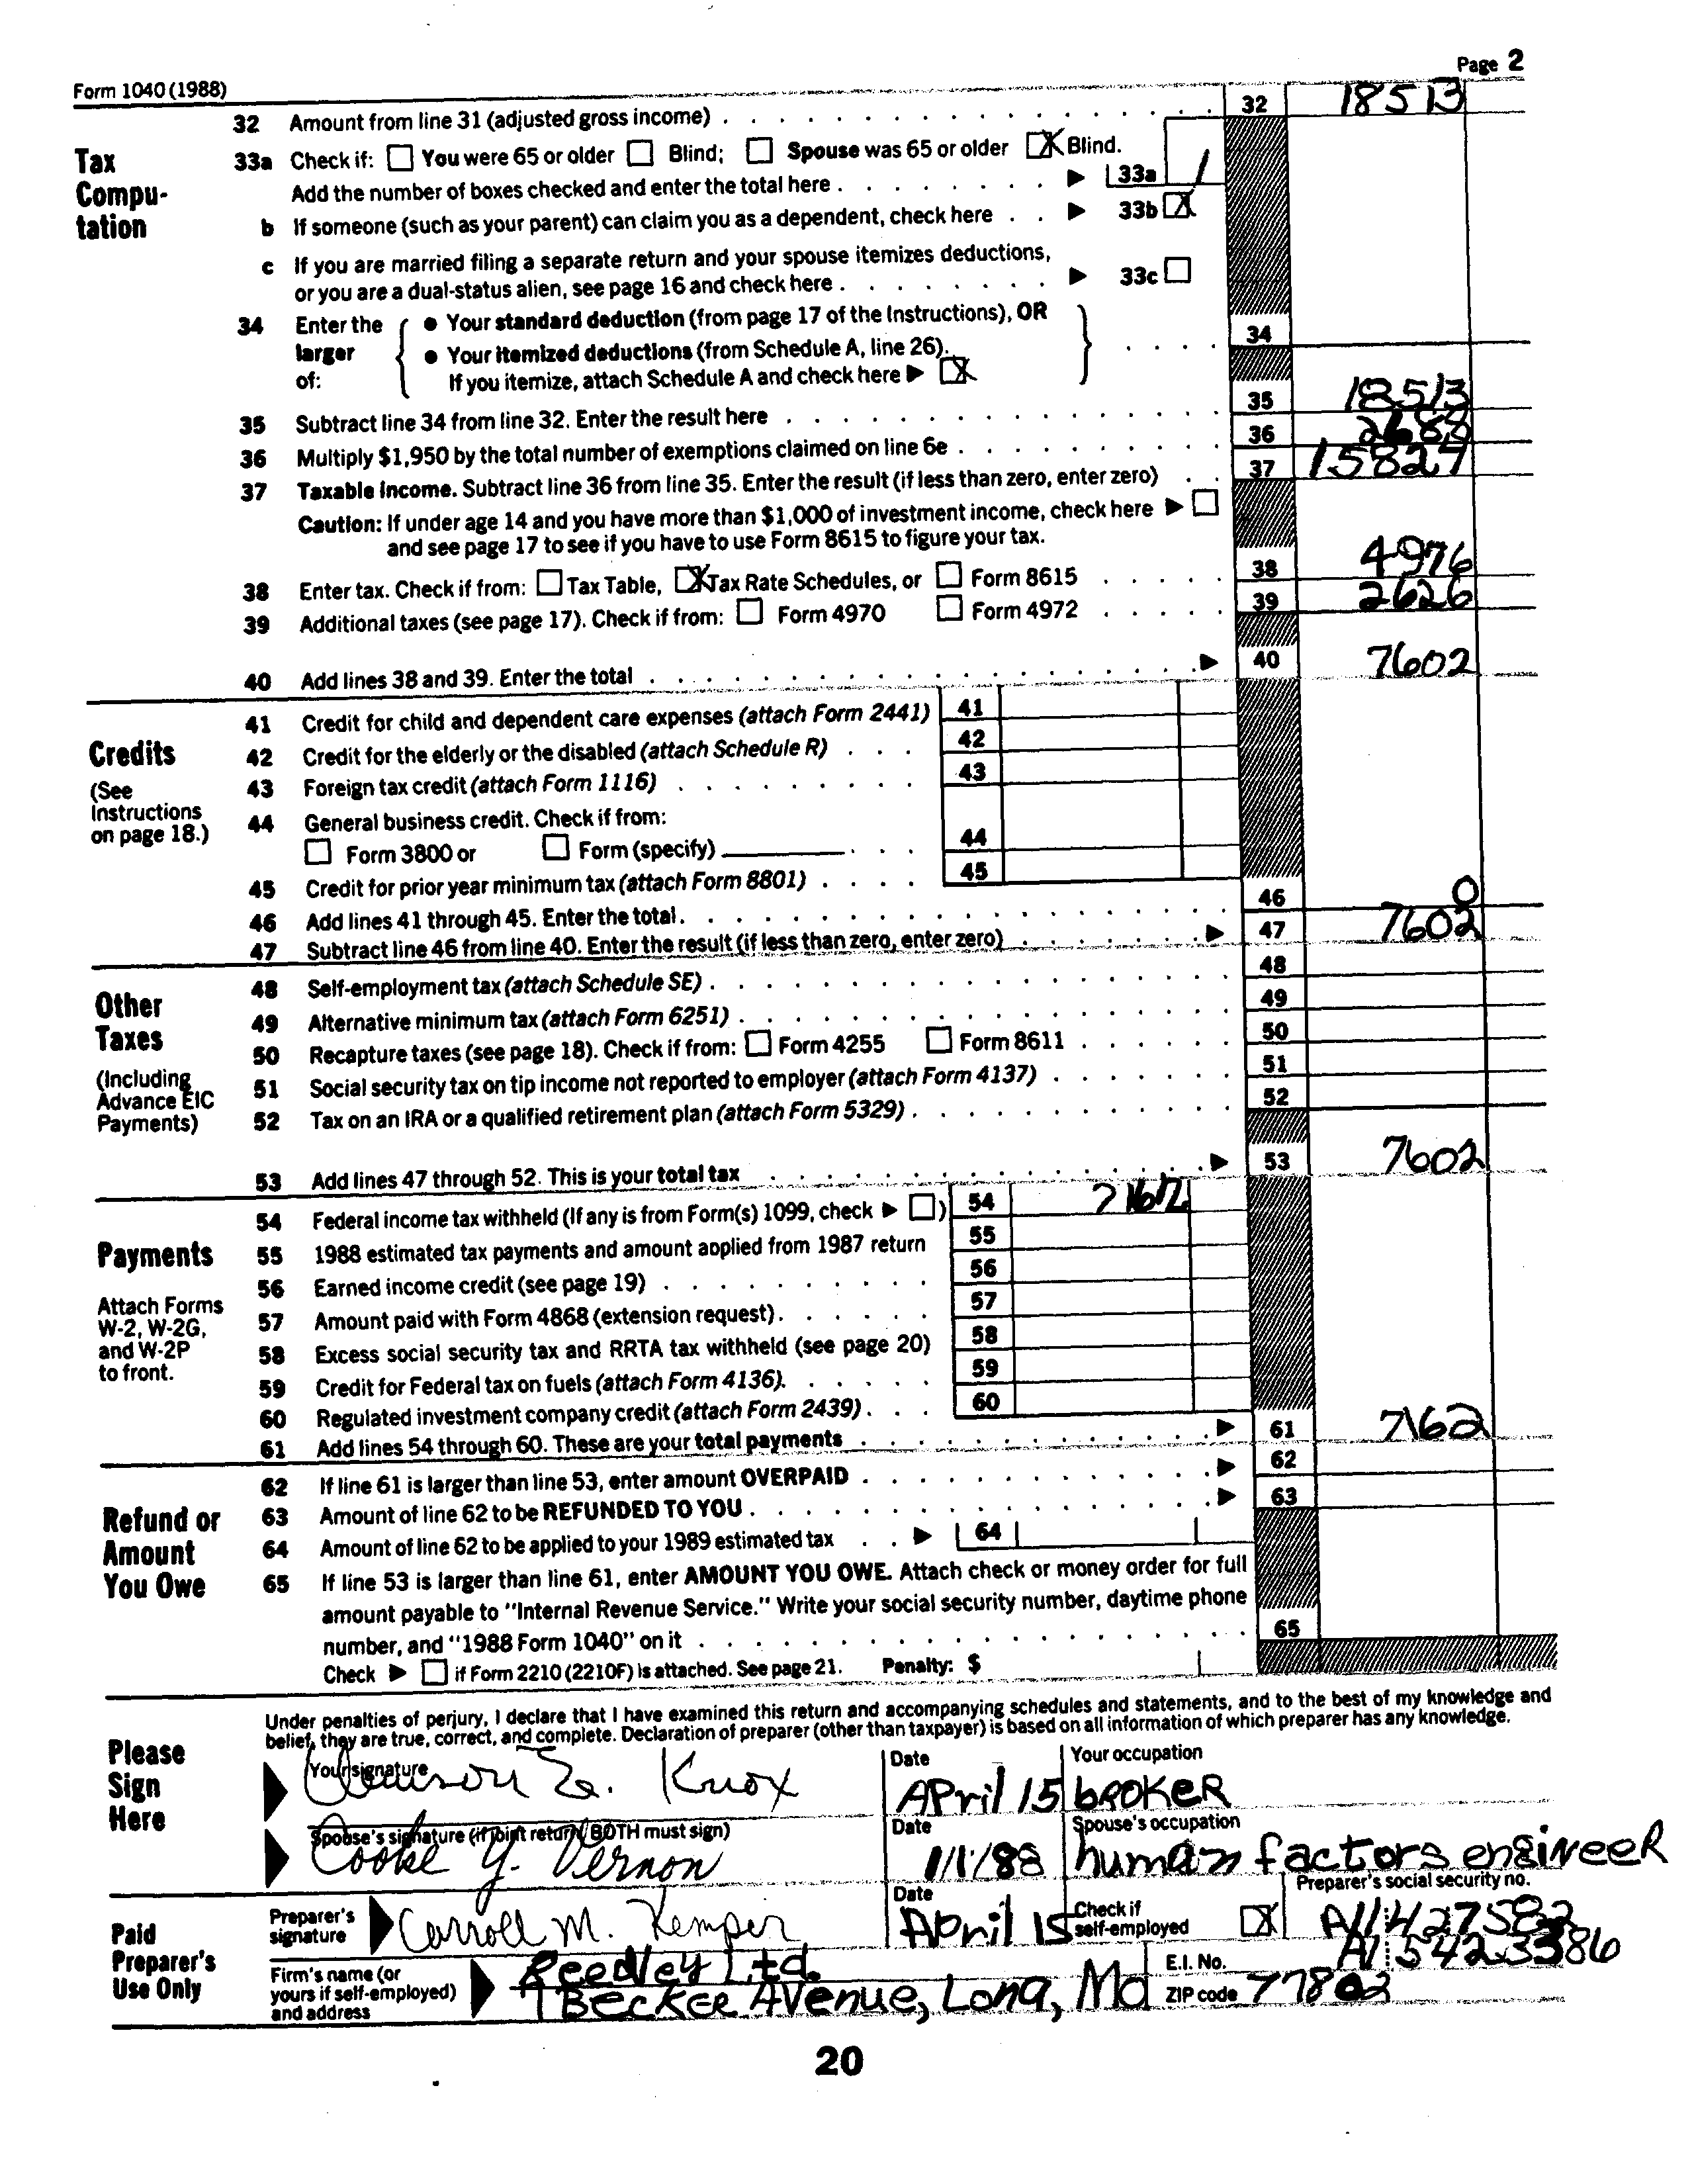 Page 2
Form 1040 (1988)
32 Amount from line 31 (adjusted gross income) 32 18513
Tax Compu-tation
33a Check if: You were 65 or older Blind; Spouse was 65 or older X Blind.
Add the number of boxes checked and enter the total here 33a 1
b If someone (such as your parent) can claim you as a dependent, check here 33b X
c If you are married filing a separate return and your spouse itemizes deductions,
or you are a dual-status alien, see page 16 and check here 33c
34 Enter the larger of:
• Your standard deduction (from page 17 of the Instructions), OR
• Your itemized deductions (from Schedule A, line 26).
If you itemize, attach Schedule A and check here X
34
35 Subtract line 34 from line 32. Enter the result here 35 18513
36 Multiply $1,950 by the total number of exemptions claimed on line 6e 36
37 Taxable income. Subtract line 36 from line 35. Enter the result (if less than zero, enter zero) 37 15827
Caution: If under age 14 and you have more than $1,000 of investment income, check here
and see page 17 to see if you have to use Form 8615 to figure your tax.
38 Enter tax. Check if from: Tax Table, X Tax Rate Schedules, or Form 8615 38 4976
39 Additional taxes (see page 17). Check if from: Form 4970 Form 4972 39 2626
40 Add lines 38 and 39. Enter the total 40 7602
Credits
(See Instructions on page 18.)
41 Credit for child and dependent care expenses (attach Form 2441) 41
42 Credit for the elderly or the disabled (attach Schedule R) 42
43 Foreign tax credit (attach Form 1116) 43
44 General business credit. Check if from:
Form 3800 or Form (specify) 44
45 Credit for prior year minimum tax (attach Form 8801) 45
46 Add lines 41 through 45. Enter the total 46 0
47 Subtract line 46 from line 40. Enter the result (if less than zero, enter zero) 47 7602
Other Taxes
(Including Advance EIC Payments)
48 Self-employment tax (attach Schedule SE) 48
49 Alternative minimum tax (attach Form 6251) 49
50 Recapture taxes (see page 18). Check if from: Form 4255 Form 8611 50
51 Social security tax on tip income not reported to employer (attach Form 4137) 51
52 Tax on an IRA or a qualified retirement plan (attach Form 5329) 52
53 Add lines 47 through 52. This is your total tax 53 7602
Payments
Attach Forms W-2, W-2G, and W-2P to front.
54 Federal income tax withheld (If any is from Form(s) 1099, check ) 54 7162
55 1988 estimated tax payments and amount applied from 1987 return 55
56 Earned income credit (see page 19) 56
57 Amount paid with Form 4868 (extension request) 57
58 Excess social security tax and RRTA tax withheld (see page 20) 58
59 Credit for Federal tax on fuels (attach Form 4136). 59
60 Regulated investment company credit (attach Form 2439) 60
61 Add lines 54 through 60. These are your total payments 61 7162
Refund or Amount You Owe
62 If line 61 is larger than line 53, enter amount OVERPAID 62
63 Amount of line 62 to be REFUNDED TO YOU 63
64 Amount of line 62 to be applied to your 1989 estimated tax 64
65 If line 53 is larger than line 61, enter AMOUNT YOU OWE. Attach check or money order for full
amount payable to "Internal Revenue Service." Write your social security number, daytime phone
number, and "1988 Form 1040" on it 65
Check if Form 2210 (2210F) is attached. See page 21. Penalty: $
Please Sign Here
Under penalties of perjury, I declare that I have examined this return and accompanying schedules and statements, and to the best of my knowledge and
belief, they are true, correct, and complete. Declaration of preparer (other than taxpayer) is based on all information of which preparer has any knowledge.
Your signature Date Your occupation
Knox April 15 broker
Spouse's signature (if joint return, BOTH must sign) Date Spouse's occupation
Cooke Y. Vernon 1/1/88 human factors engineer
Paid Preparer's Use Only
Preparer's signature Carroll M. Kemper Date April 15 Check if self-employed X Preparer's social security no.
Firm's name (or yours if self-employed) and address Reedley Ltd. E.I. No.
1 Becker Avenue, Lona, Md ZIP code 77802
20